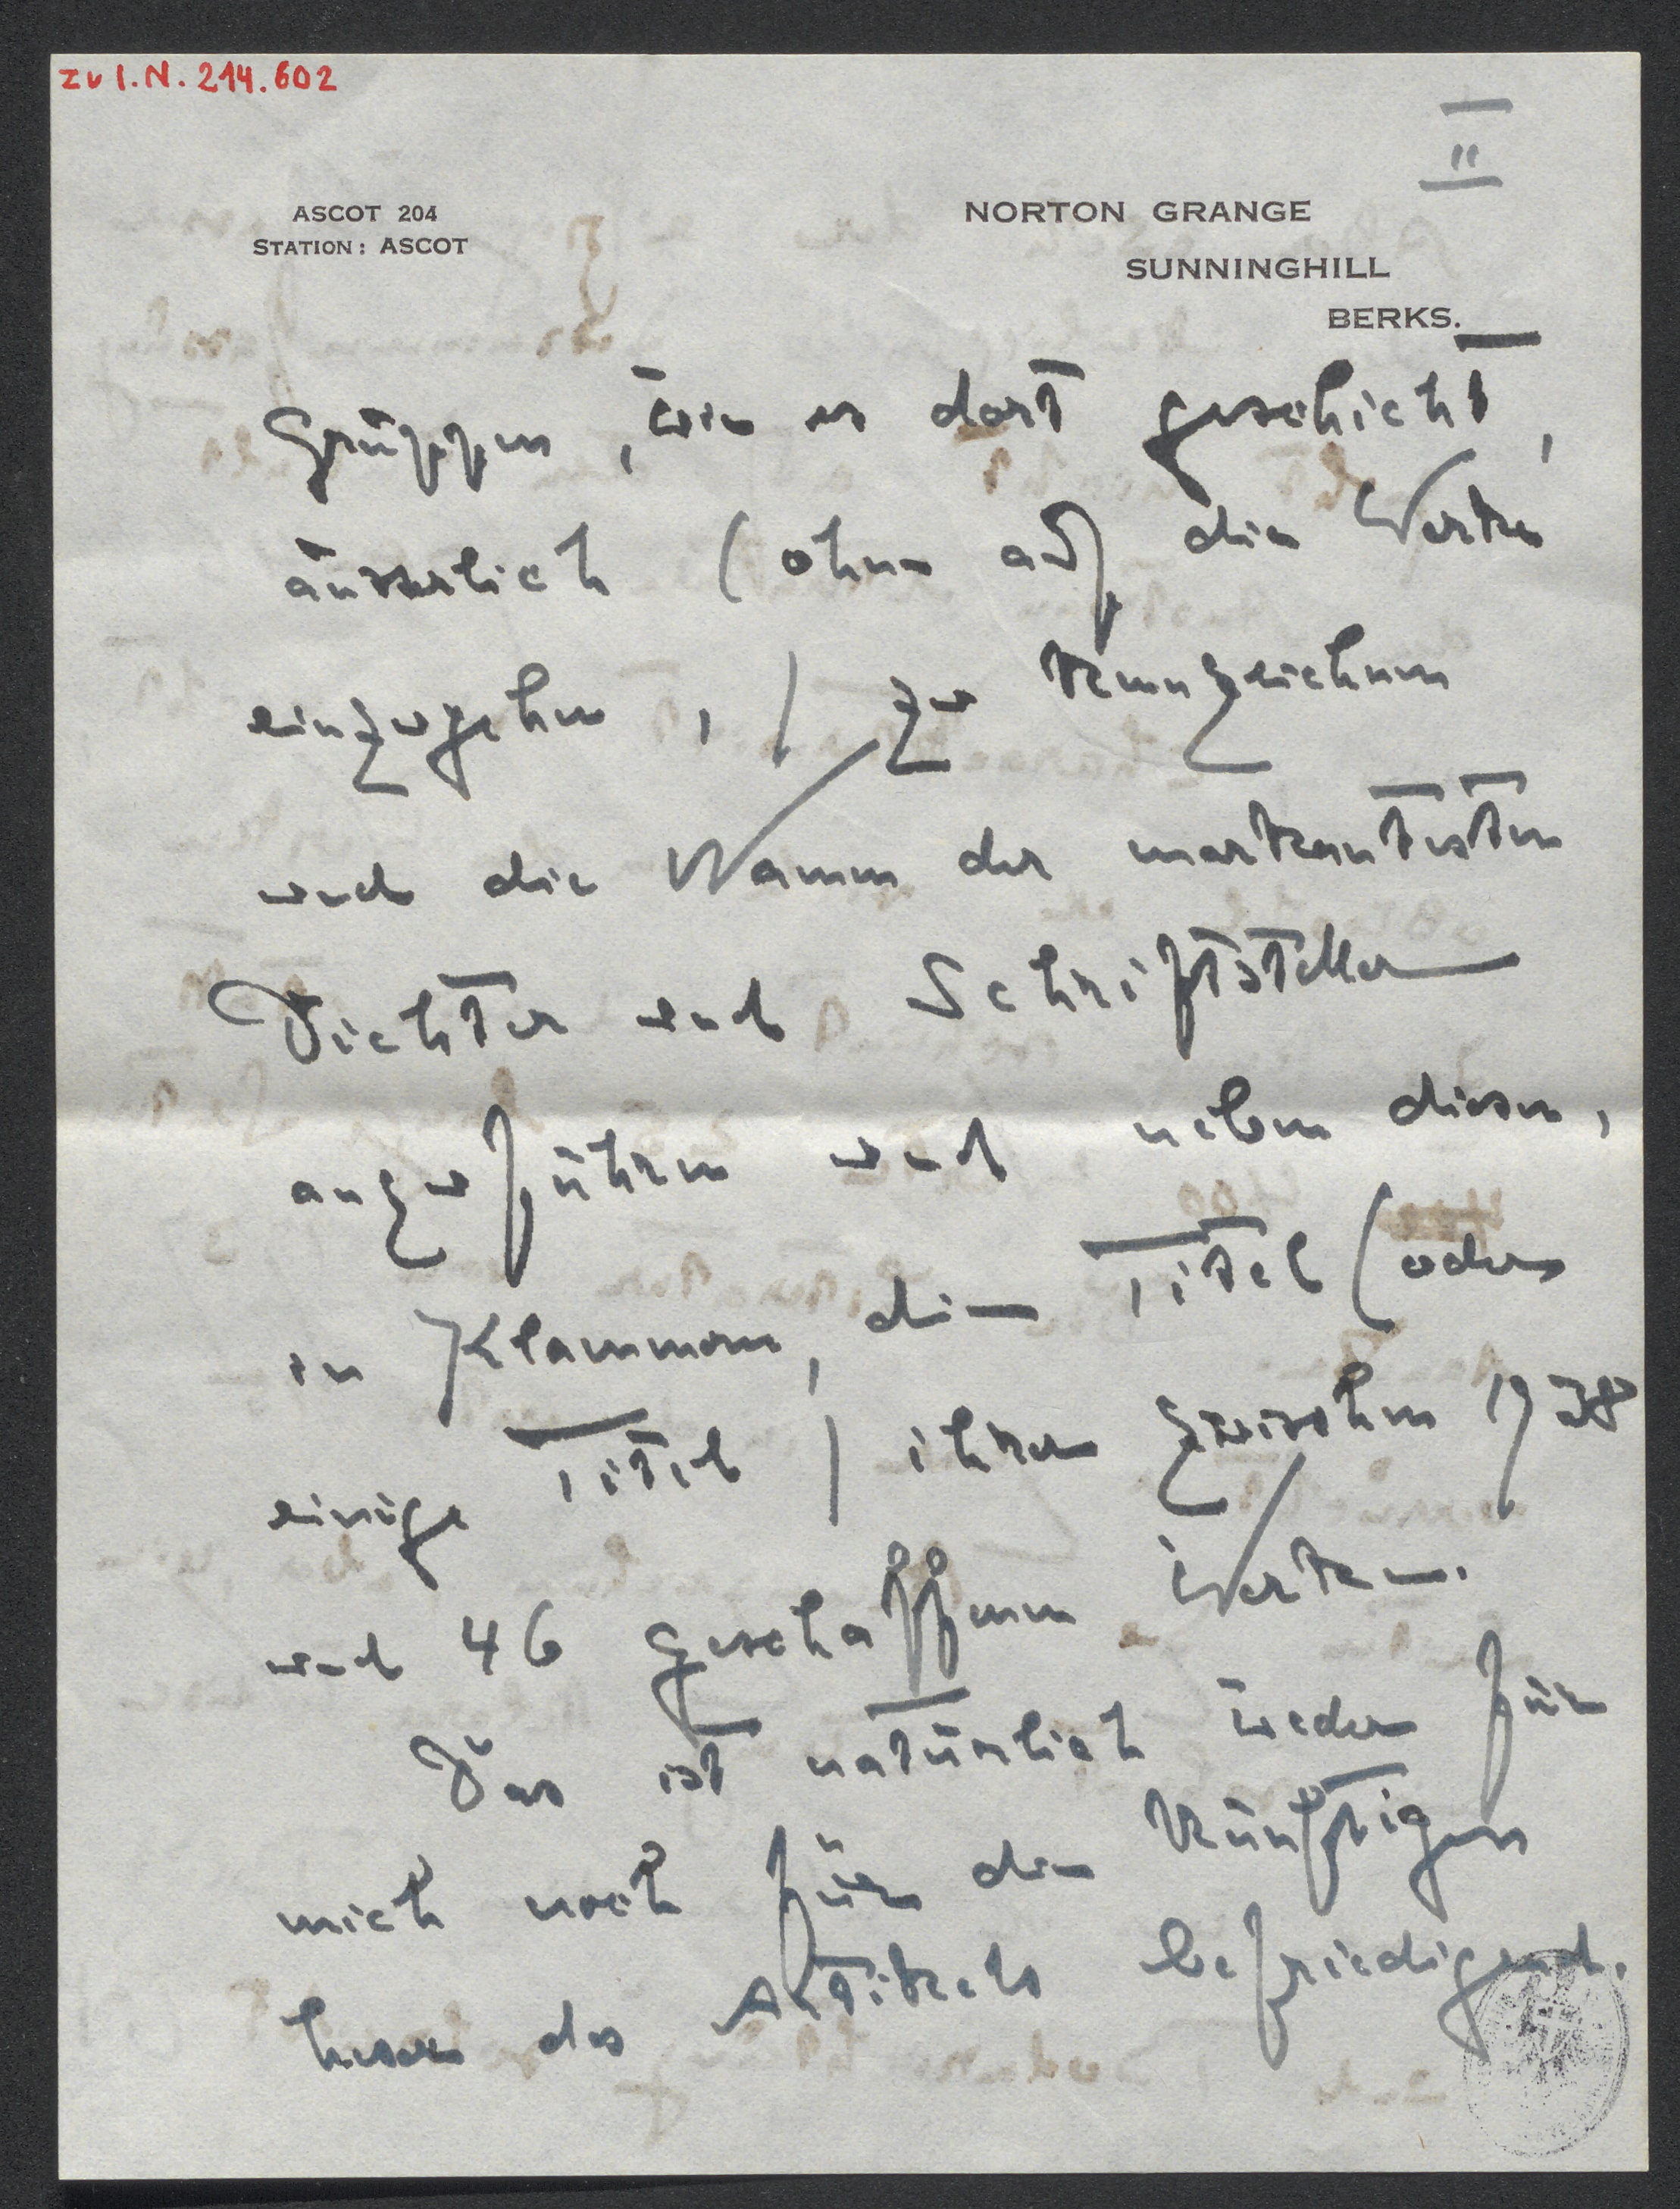 zu I.N. 214.602
II
ASCOT 204
STATION: ASCOT
NORTON GRANGE
SUNNINGHILL
BERKS.
Gruppen, wie es dort geschieht,
äusserlich (ohne auf die Werke
einzugehen,) zu kennzeichnen
und die Namen der markantesten
Dichter und Schriftsteller
anzuführen und neben diesen,
in Klammern, die Titel (oder
einige Titel) ihrer zwischen 1938
und 46 geschaffenen Werke.
Das ist natürlich weder für
mich noch für die künftigen
Leser des Artikels befriedigend.